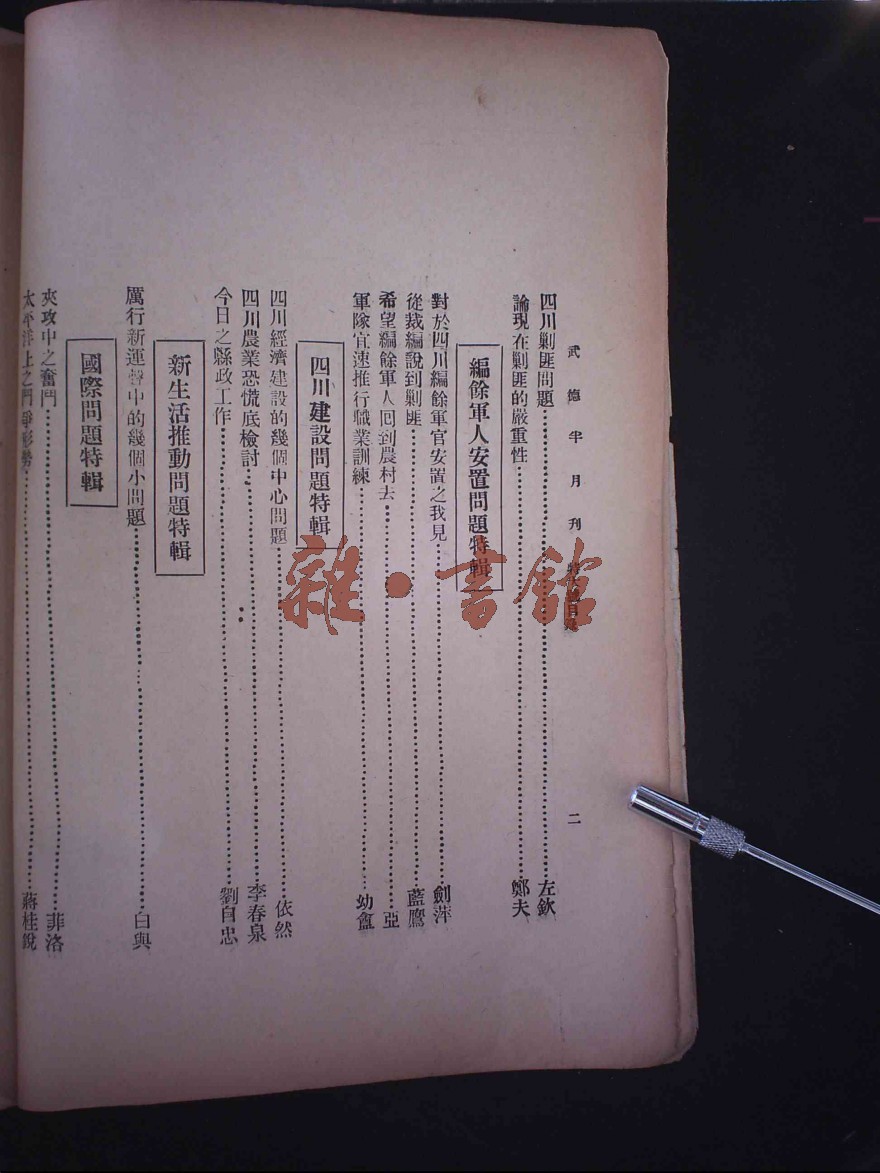 武德半月刊 特大號目錄 二
四川剿匪問題 左欽
論現在剿匪的嚴重性 鄭夫
編餘軍人安置問題特輯
對於四川編餘軍官安置之我見 劍萍
從裁編說到剿匪 藍鷹
希望編餘軍人回到農村去 亞
軍隊宜速推行職業訓練 幼盦
四川建設問題特輯
四川經濟建設的幾個中心問題 依然
四川農業恐慌底檢討 李春泉
今日之縣政工作 劉自忠
新生活推動問題特輯
厲行新運聲中的幾個小問題 白與
國際問題特輯
夾攻中之奮鬥 菲洛
太平洋上之鬥爭形勢 蔣桂銳
雜·書館